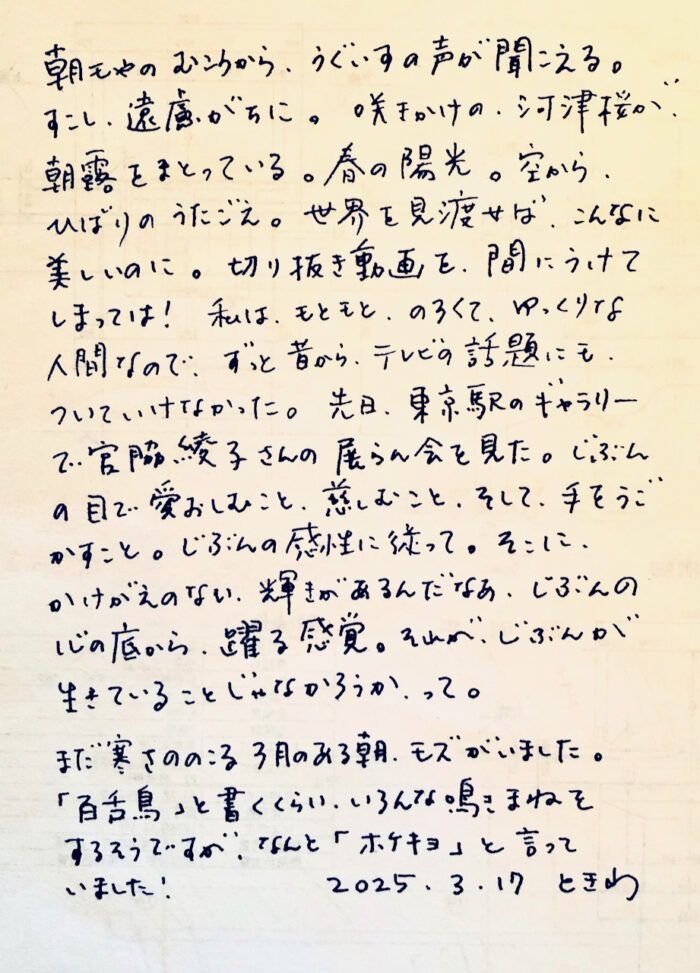 朝もやのむこうから、うぐいすの声が聞こえる。
すこし、遠慮がちに。咲きかけの、河津桜が、
朝露をまとっている。春の陽光。空から、
ひばりのうたごえ。世界を見渡せば、こんなに
美しいのに。切り抜き動画を、間にうけて
しまっては! 私は、もともと、のろくて、ゆっくりな
人間なので、ずっと昔から、テレビの話題にも、
ついていけなかった。先日、東京駅のギャラリー
で宮脇綾子さんの展らん会を見た。じぶん
の目で愛おしむこと、慈しむこと、そして、手をうご
かすこと。じぶんの感性に従って。そこに、
かけがえのない、輝きがあるんだなあ、じぶんの
心の底から、躍る感覚。それが、じぶんが
生きていることじゃなかろうか、って。
まだ寒さののこる3月のある朝、モズがいました。
「百舌鳥」と書くくらい、いろんな鳴きまねを
するそうですが、なんと「ホケキョ」と言って
いました! 2025.3.17 ときわ